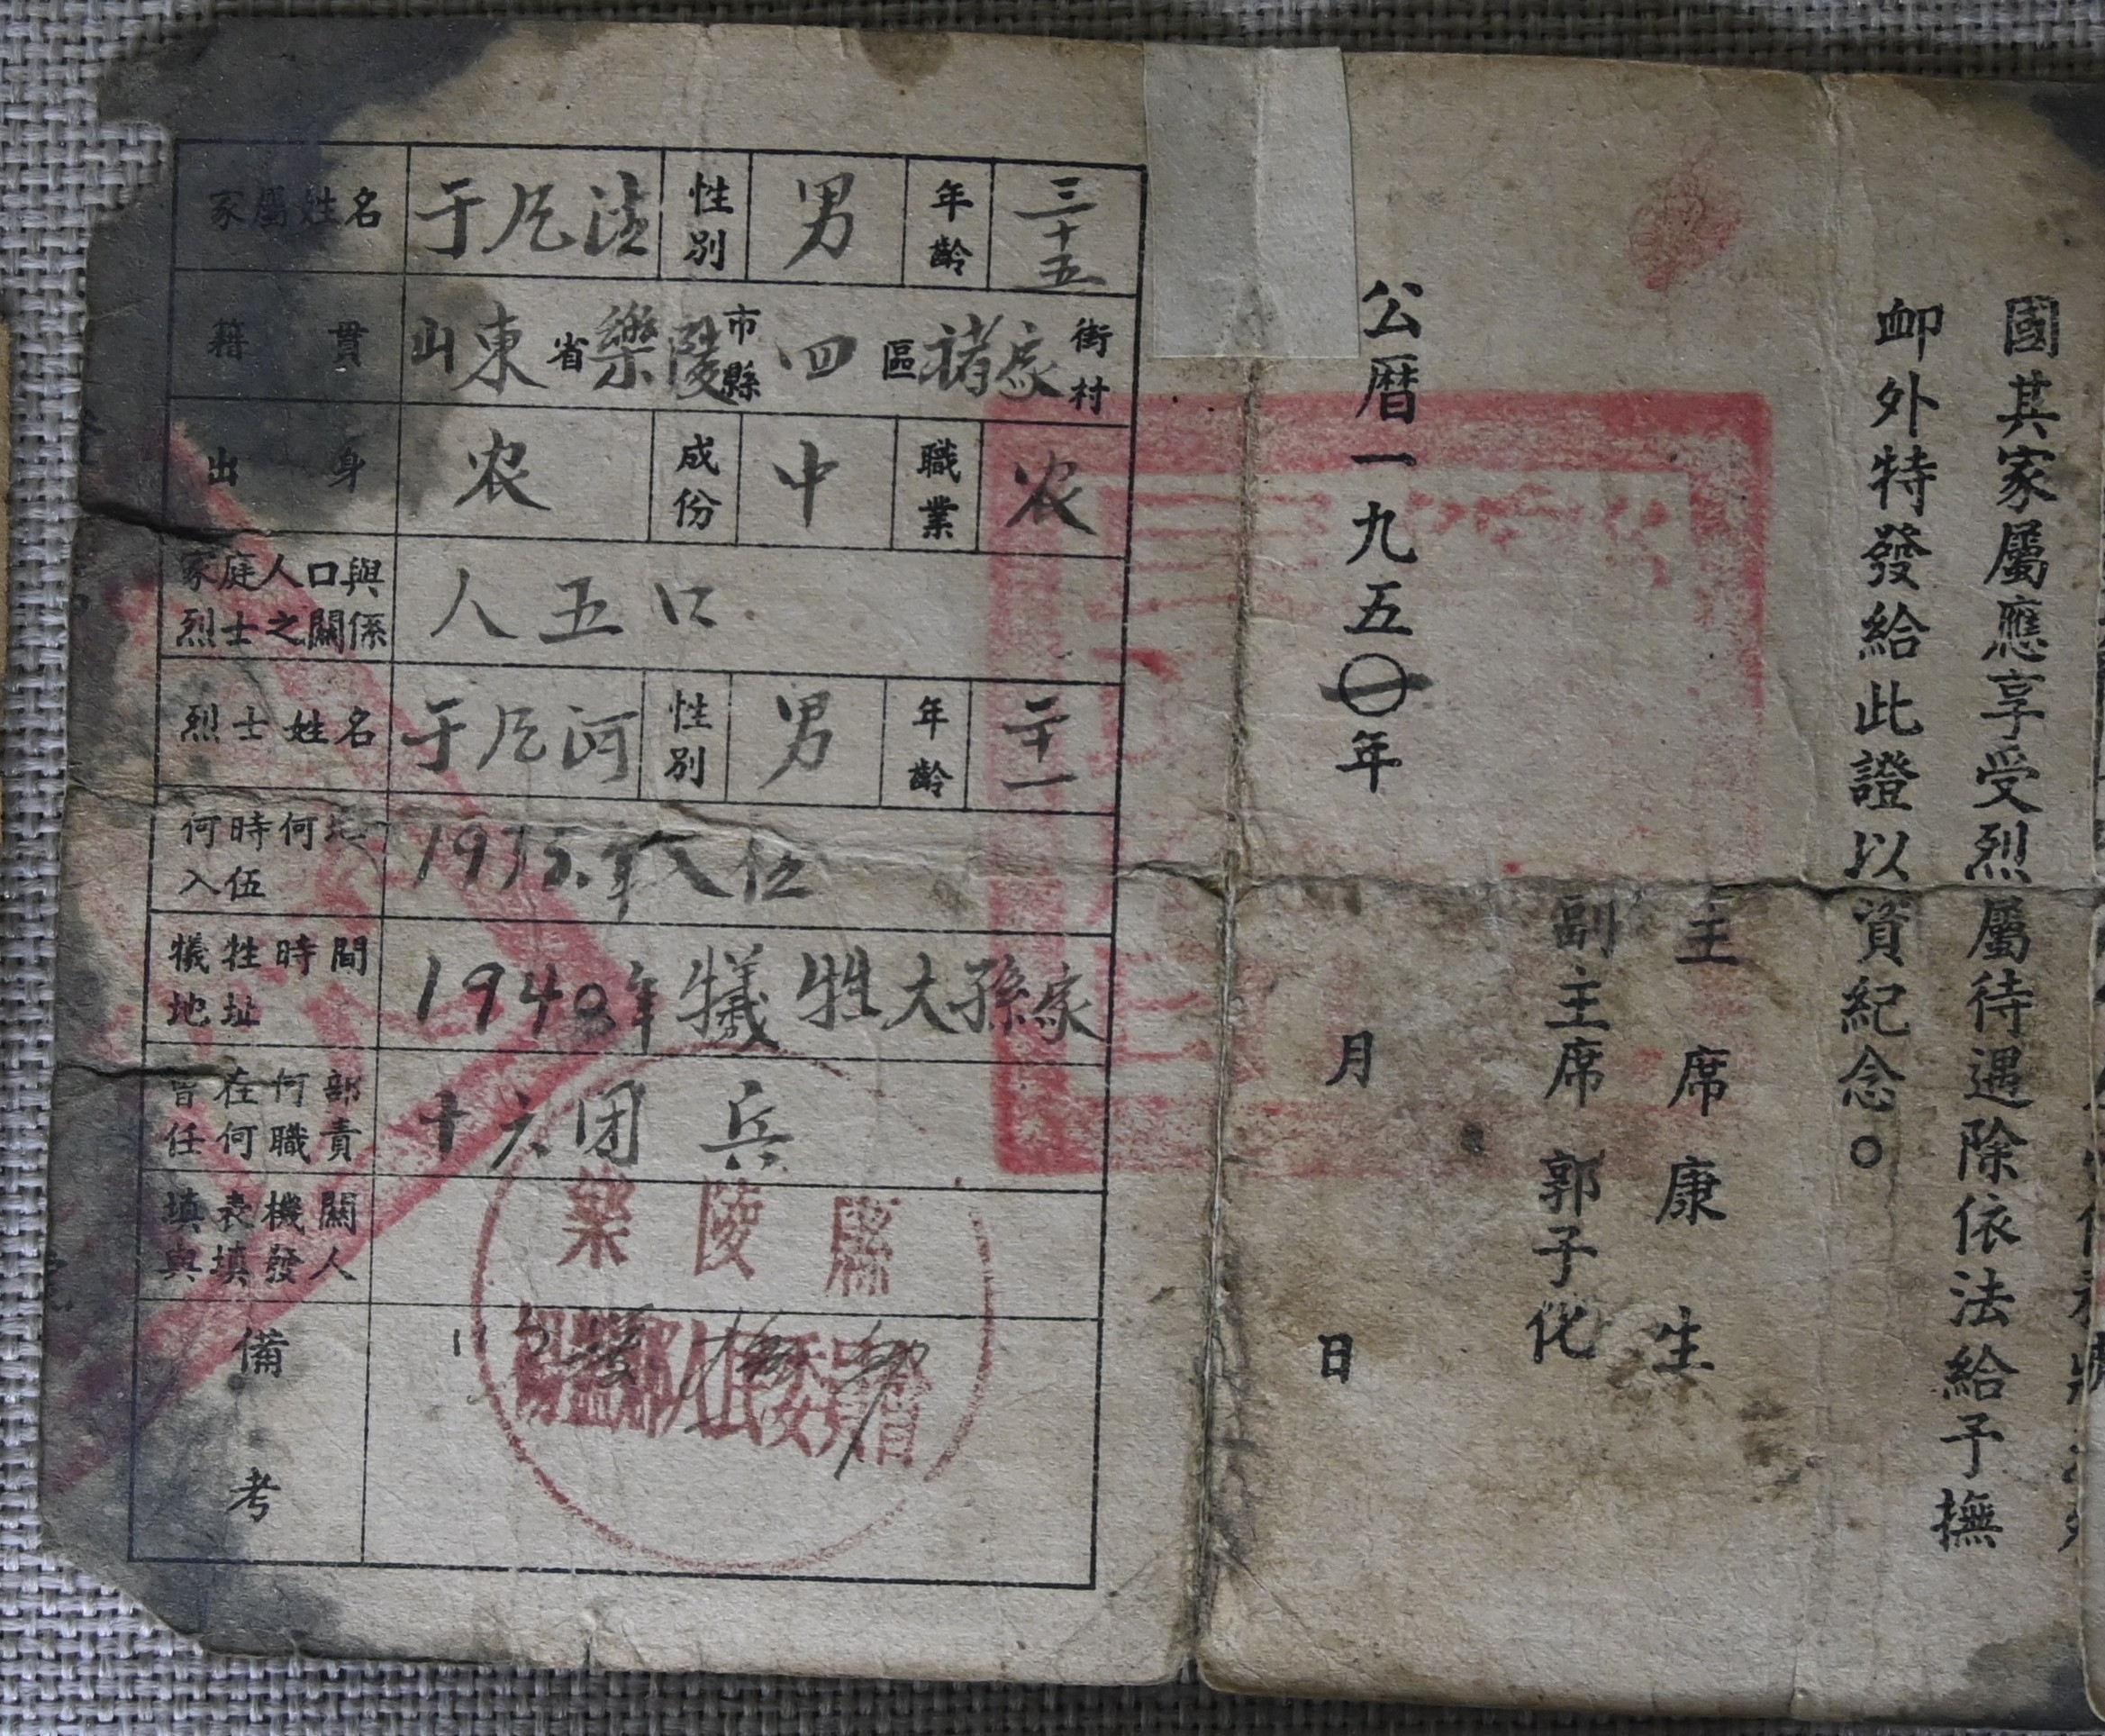 國其家屬應享受烈屬待遇除依法給予撫
卹外特發給此證以資紀念。
主席康生
副主席郭子化
公曆一九五〇年 月 日
家屬姓名 于 法 性別 男 年齡 三十五
籍貫 山東省樂陵市縣四區褚家街村
出身 农 成份 中 職業 农
家庭人口與烈士之關係 人五口
烈士姓名 于 河 性別 男 年齡 二十一
何時何地入伍 年入伍
犧牲時間地址 1940年犧牲大孫家
曾在何部任何職責 十六团 兵
填表機關與填發人
樂陵縣
備考